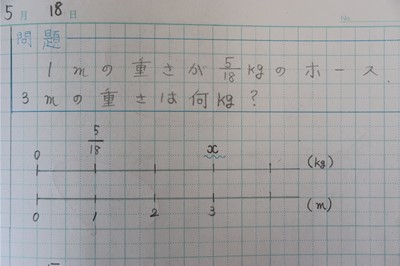 5月 18日
問題
1mの重さが5/18kgのホース.
3mの重さは何kg?
0 5/18 x (kg)
0 1 2 3 (m)